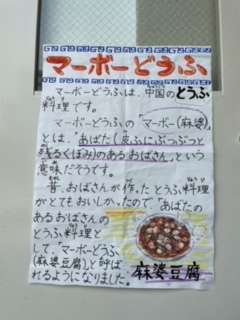 マーボーどうふ
マーボーどうふは、中国のとうふ
料理です。
マーボーどうふの「マーボー(麻婆)」
とは、"あばた(皮ふにぶつぶつと
残るくぼみ)のあるおばさん"という
意味だそうです。
昔、おばさんが作ったとうふ料理
がとてもおいしかったので「あばたの
あるおばさんの
とうふ料理」と
して、「マーボーどうふ
(麻婆豆腐)」と呼ば
れるようになりました。
麻婆豆腐